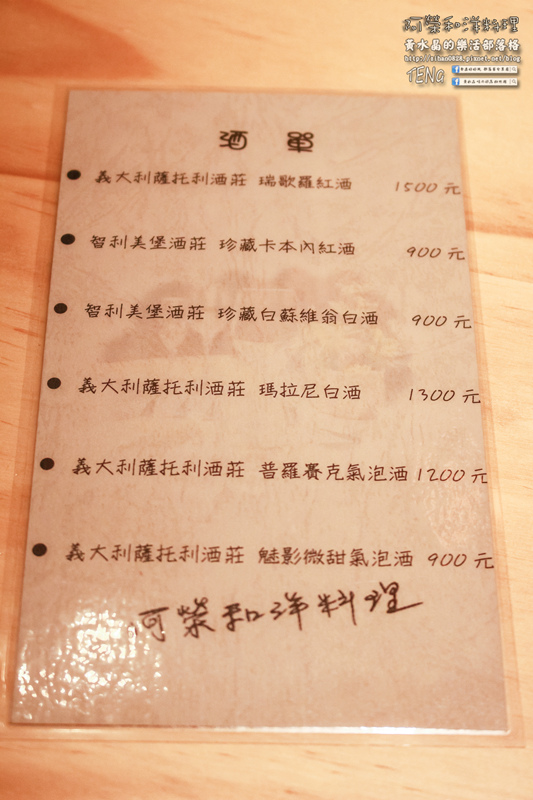 阿榮和洋料理
黃水晶的樂活部落格
http://tihan0828.pixnet.net/blog
TENG
酒 單
● 義大利薩托利酒莊 瑞歌羅紅酒 1500元
● 智利美堡酒莊 珍藏卡本內紅酒 900元
● 智利美堡酒莊 珍藏白蘇維翁白酒 900元
● 義大利薩托利酒莊 瑪拉尼白酒 1300元
● 義大利薩托利酒莊 普羅賽克氣泡酒 1200元
● 義大利薩托利酒莊 魅影微甜氣泡酒 900元
阿榮和洋料理